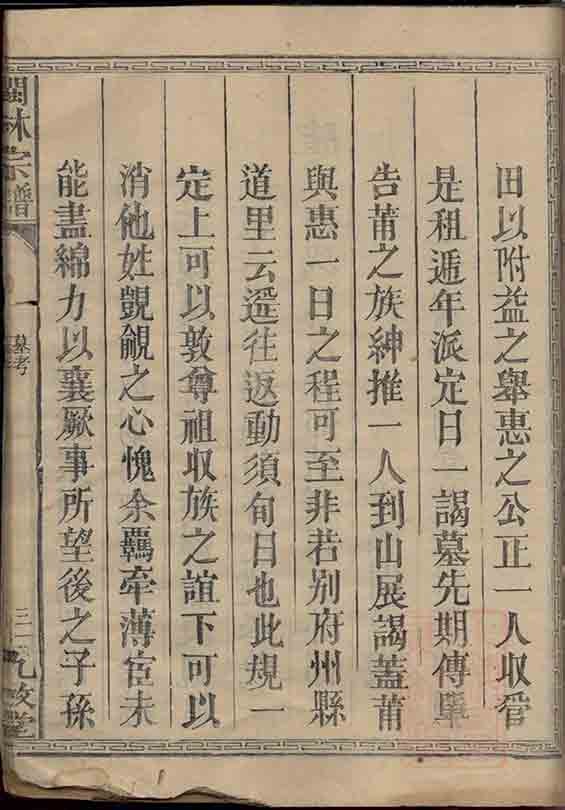 田以附益之舉惠之公正一人收管
是租遞年派定日一謁墓先期傳單
告莆之族紳推一人到山展謁蓋莆
與惠一日之程可至非若別府州縣
道里云遥往返動須旬日也此規一
定上可以敦尊祖収族之誼下可以
消他姓覬覦之心愧余羈牽薄宦未
能盡綿力以襄厥事所望後之子孫
閩林宗譜
墓考